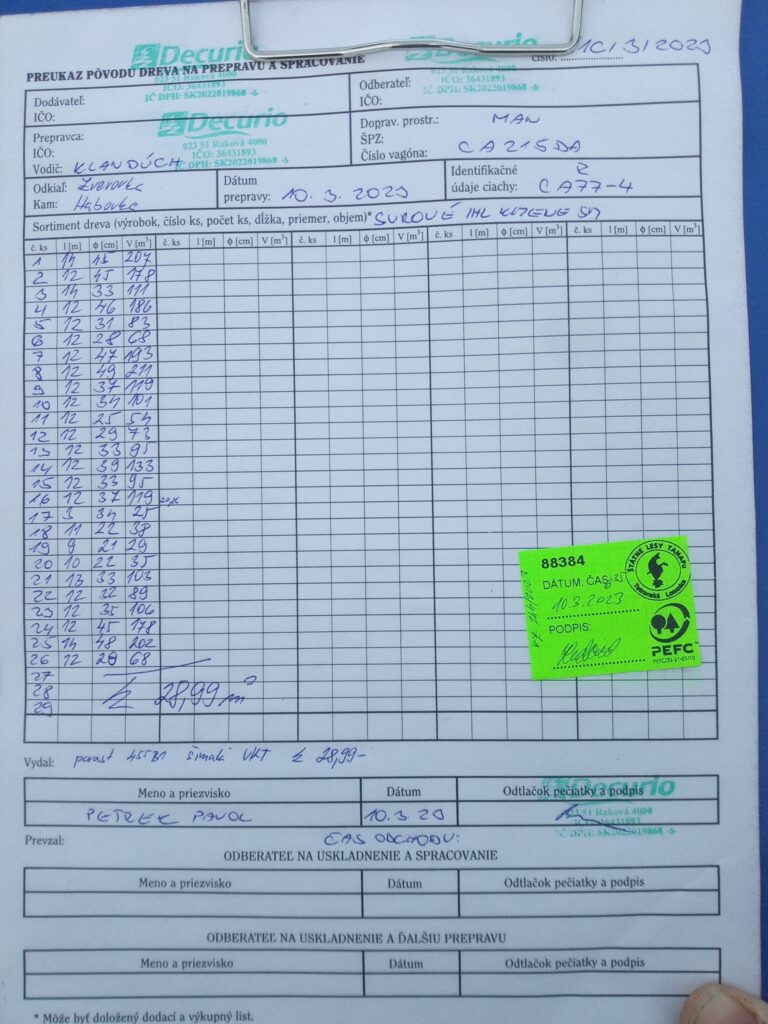 Decurio
023 51 Raková 4000
IČO: 36431893
IČ DPH: SK2022019868
Decurio
IČO: 36431893
IČ DPH: SK2022019868
ČÍSLO: 10/3/2023
PREUKAZ PÔVODU DREVA NA PREPRAVU A SPRACOVANIE
Dodávateľ:
IČO:
Odberateľ:
IČO:
Prepravca:
IČO:
Vodič: KLANDÚCH
Decurio
023 51 Raková 4000
IČO: 36431893
IČ DPH: SK2022019868
Doprav. prostr.: MAN
ŠPZ:
Číslo vagóna: CA215DA
Odkiaľ: Zverovka
Kam: Habovka
Dátum
prepravy: 10. 3. 2023
Identifikačné
údaje ciachy: CA77-4
Sortiment dreva (výrobok, číslo ks, počet ks, dĺžka, priemer, objem)* SUROVÉ IHL KMENE SM
č. ks l [m] ϕ [cm] V [m³] č. ks l [m] ϕ [cm] V [m³] č. ks l [m] ϕ [cm] V [m³] č. ks l [m] ϕ [cm] V [m³] č. ks l [m] ϕ [cm] V [m³]
1 14 45 207
2 12 45 178
3 14 33 111
4 12 46 186
5 12 31 83
6 12 28 68
7 12 47 193
8 12 49 211
9 12 37 119
10 12 34 101
11 12 25 54
12 12 29 73
13 12 33 95
14 12 39 133
15 12 33 95
16 12 37 119
17 3 34 25
18 11 22 38
19 9 21 29
20 10 22 35
21 13 33 103
22 12 32 89
23 12 35 106
24 12 45 178
25 14 48 202
26 12 28 68
27
28 Σ 28,99 m³
29
88384
DÁTUM: ČAS:
10.3.2023
PODPIS:
ŠTÁTNE LESY TANAPU
Tatranská Lomnica
PEFC
PEFC/22-21-03/10
Vydal: porast 455B1 VKT Σ 28,99-
Meno a priezvisko Dátum Odtlačok pečiatky a podpis
PETREK PAVOL 10.3.23
Decurio
023 51 Raková 4000
IČO: 36431893
IČ DPH: SK2022019868
Prevzal: ČAS ODCHODU:
ODBERATEĽ NA USKLADNENIE A SPRACOVANIE
Meno a priezvisko Dátum Odtlačok pečiatky a podpis
ODBERATEĽ NA USKLADNENIE A ĎALŠIU PREPRAVU
Meno a priezvisko Dátum Odtlačok pečiatky a podpis
* Môže byť doložený dodací a výkupný list.